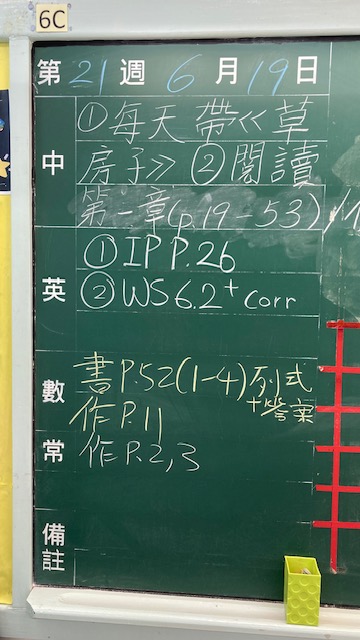 6C
第21週6月19日
中 ①每天帶<<草
房子>> ②閱讀
第一章(p.19-53)
英 ①IP P.26
②WS6.2+corr
數 書P.52(1-4)列式
+答案
作P.11
常 作P.2,3
備註